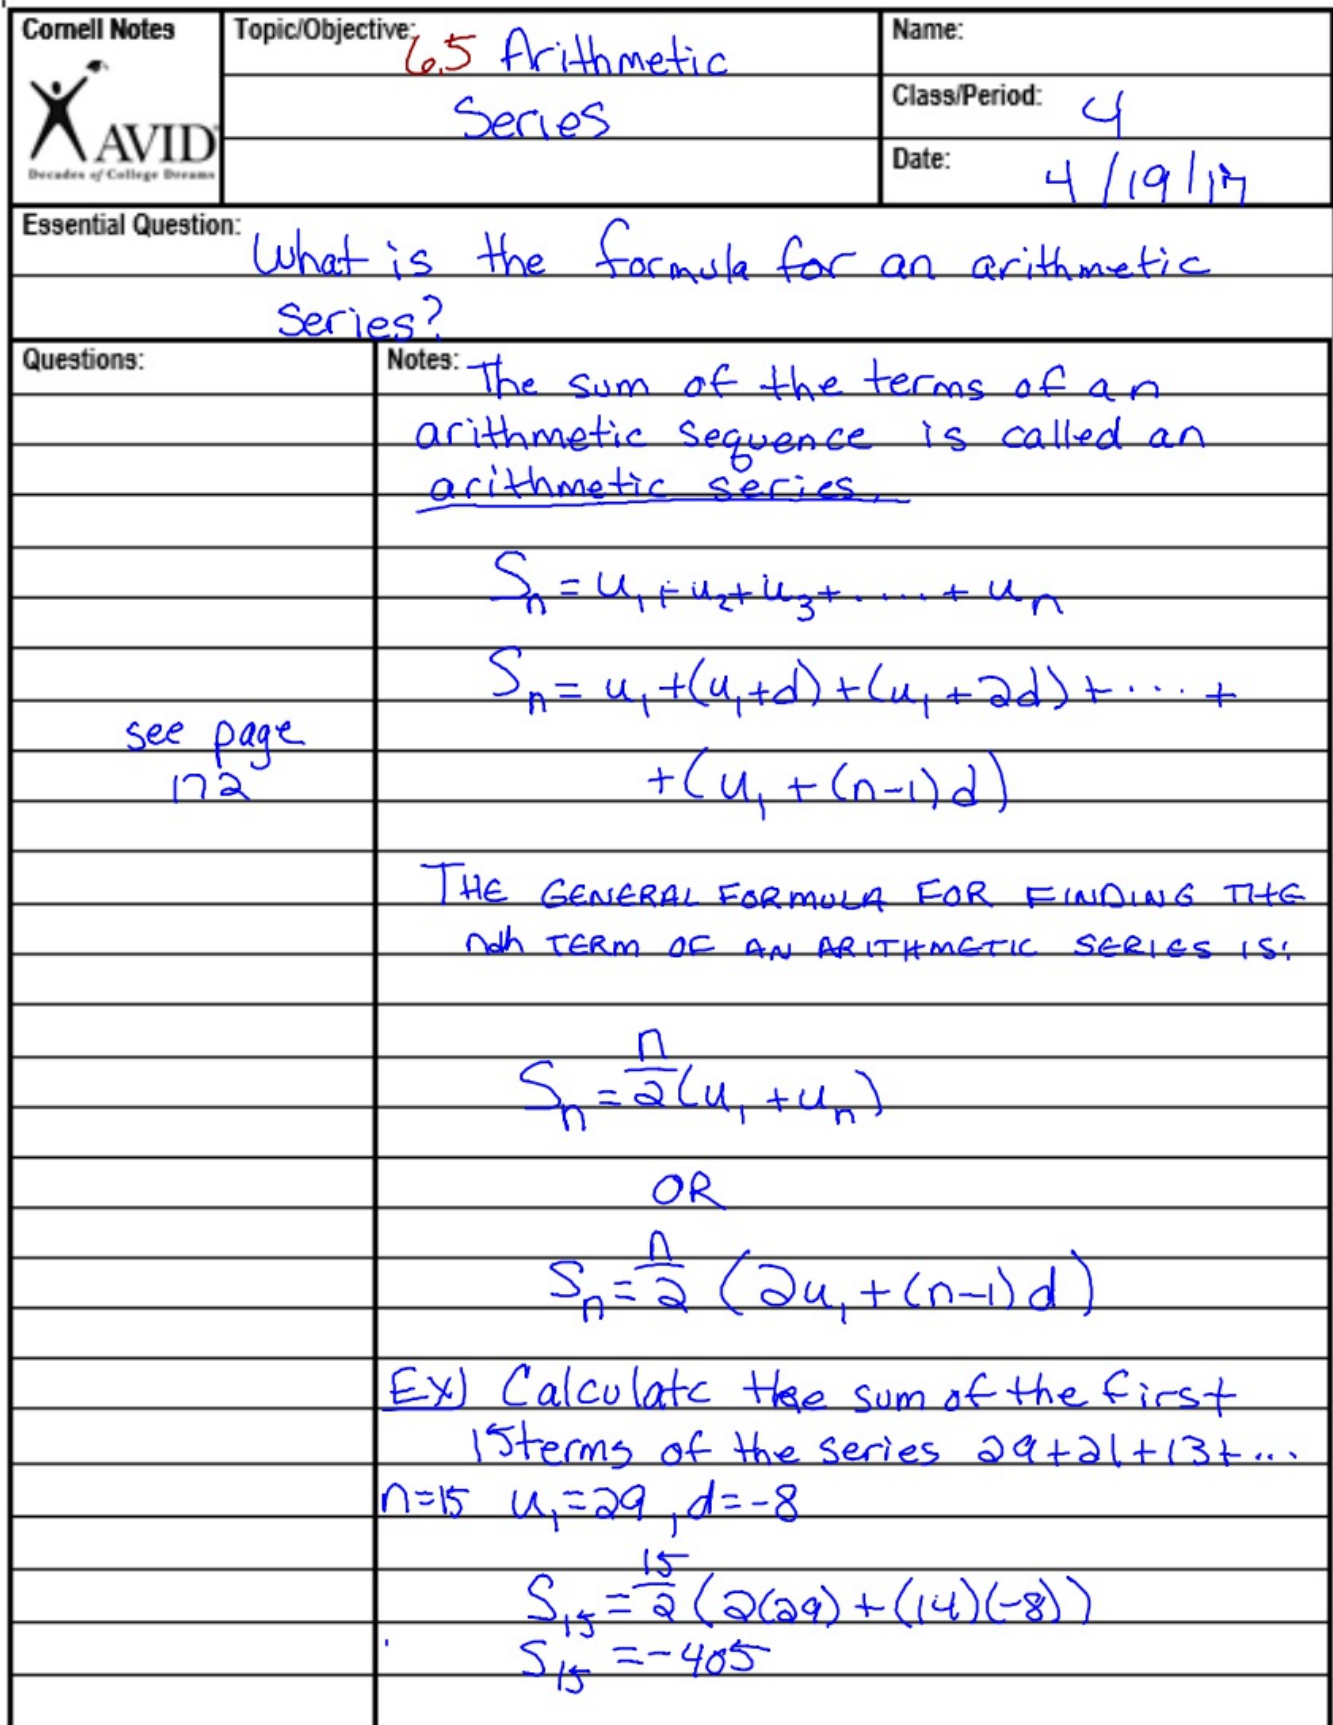 Cornell Notes
AVID
Decades of College Dreams
Topic/Objective: 6.5 Arithmetic
Series
Name:
Class/Period: 4
Date: 4/19/17
Essential Question: What is the formula for an arithmetic
series?
Questions:
see page
172
Notes: The sum of the terms of an
arithmetic sequence is called an
arithmetic series.
Sₙ = u₁ + u₂ + u₃ + ..... + uₙ
Sₙ = u₁ + (u₁ + d) + (u₁ + 2d) + ... +
+ (u₁ + (n-1)d)
THE GENERAL FORMULA FOR FINDING THE
nth TERM OF AN ARITHMETIC SERIES IS:
Sₙ = n/2 (u₁ + uₙ)
OR
Sₙ = n/2 (2u₁ + (n-1)d)
EX) Calculate the sum of the first
15 terms of the series 29+21+13+...
n=15 u₁=29, d=-8
S₁₅ = 15/2 (2(29) + (14)(-8))
S₁₅ = -405